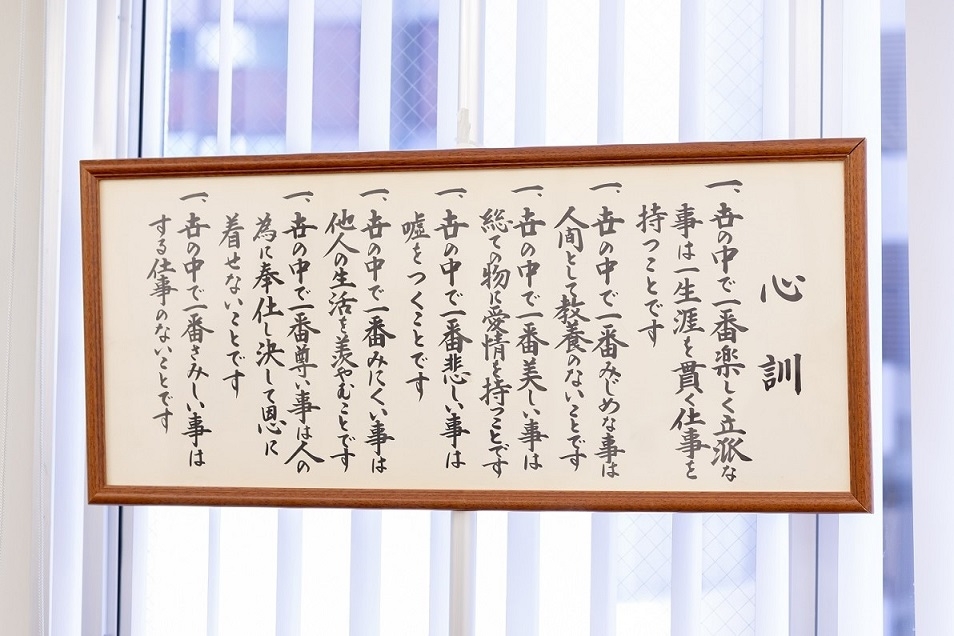 心訓
一、世の中で一番楽しく立派な
事は一生涯を貫く仕事を
持つことです
一、世の中で一番みじめな事は
人間として教養のないことです
一、世の中で一番美しい事は
総ての物に愛情を持つことです
一、世の中で一番悲しい事は
嘘をつくことです
一、世の中で一番みにくい事は
他人の生活を羨やむことです
一、世の中で一番尊い事は人の
為に奉仕し決して恩に
着せないことです
一、世の中で一番さみしい事は
する仕事のないことです